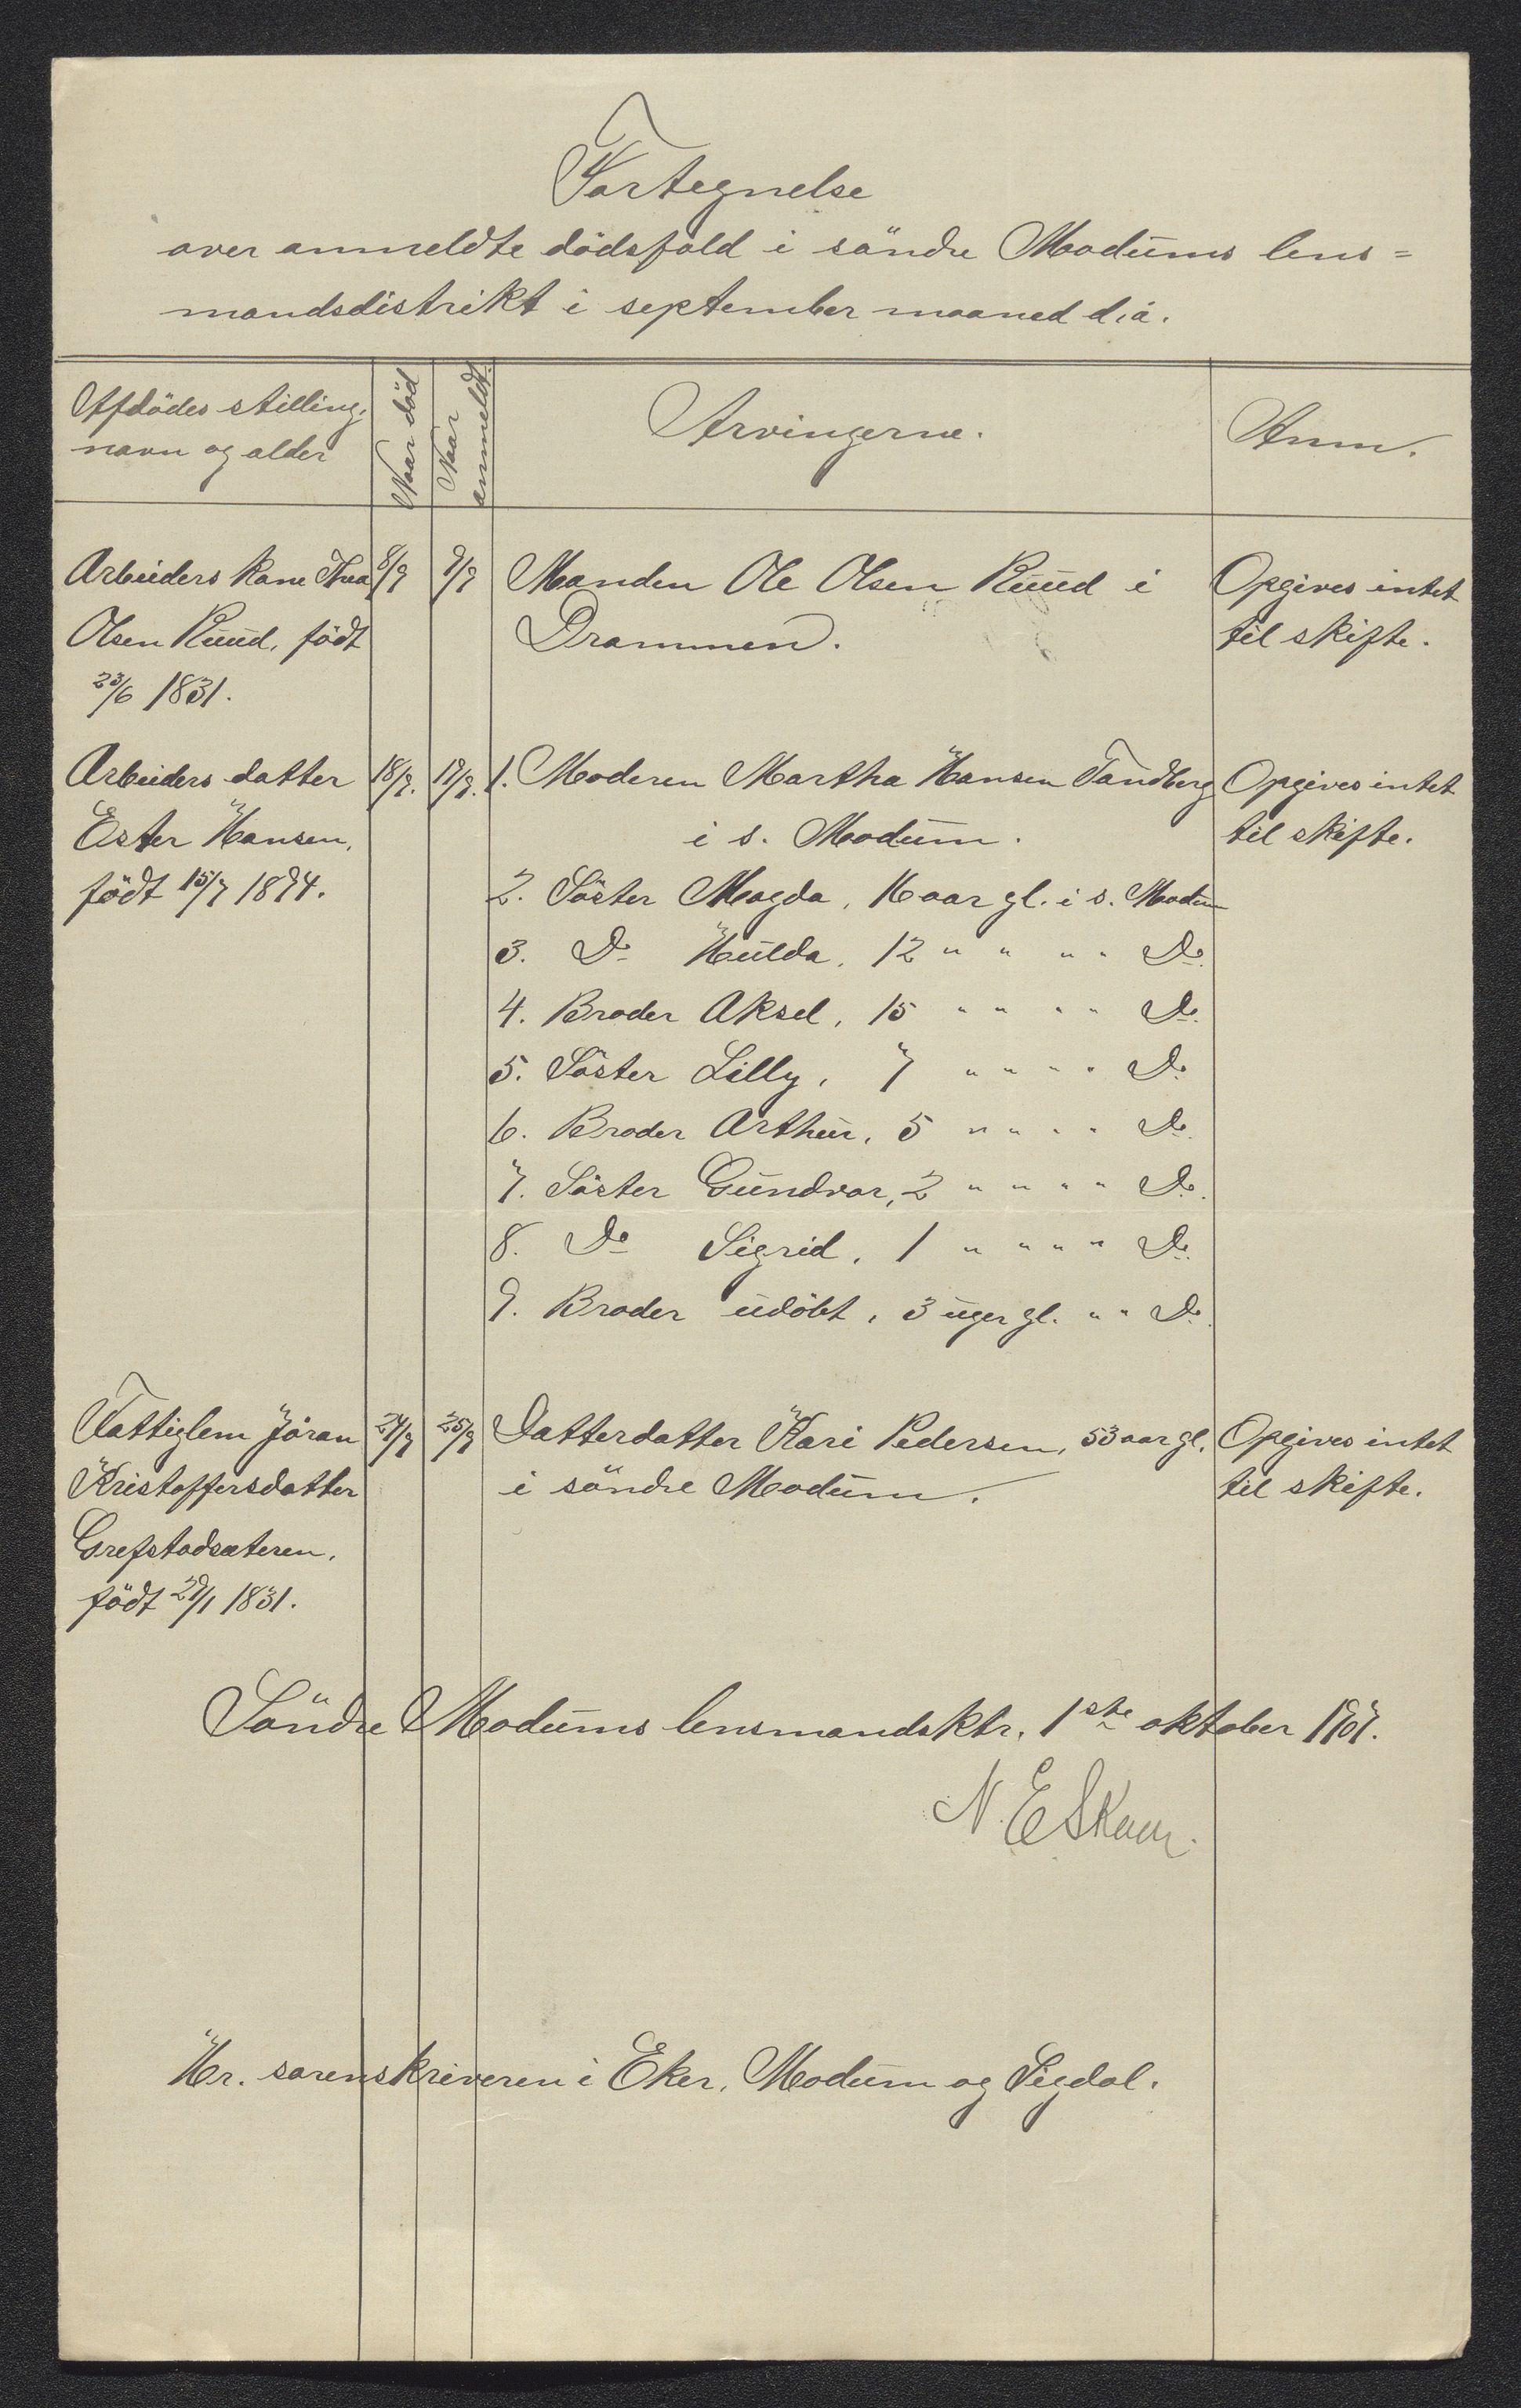 Fortegnelse
over anmeldte dödsfald i söndre Modums lens=
mandsdistrikt i september maaned d.å.
Afdödes stilling,
navn og alder
Naar död
Naar
anmeldt.
Arvingerne.
Anm.
Arbeiders kone Thea
Olsen Ruud, födt
23/6 1831.
8/9
9/9
Manden Ole Olsen Ruud i
Drammen.
Opgives intet
til skifte.
Arbeiders datter
Ester Hansen,
födt 15/7 1894.
18/9.
19/9.
1. Moderen Martha Hansen Tandberg
i s. Modum.
2. Söster Magda, 16 aar gl. i s. Modum
3. Do Hulda, 12 " " " " Do.
4. Broder Aksel, 15 " " " " Do.
5. Söster Lilly, 7 " " " " Do.
6. Broder Arthur, 5 " " " " Do.
7. Söster Gundvor, 2 " " " " Do.
8. Do Sigrid, 1 " " " " Do.
9. Broder udöbt, 3 uger gl. " " Do.
Opgives intet
til skifte.
Fattiglem Jöran
Kristoffersdatter
Grefstadsæteren,
födt 29/1 1831.
24/9
25/9
Datterdatter Kari Pedersen, 53 aar gl.
i söndre Modum.
Opgives intet
til skifte.
Söndre Modums lensmandsktr. 1ste oktober 1907.
N. E Skuer
Hr. sorenskriveren i Eker, Modum og Sigdal.